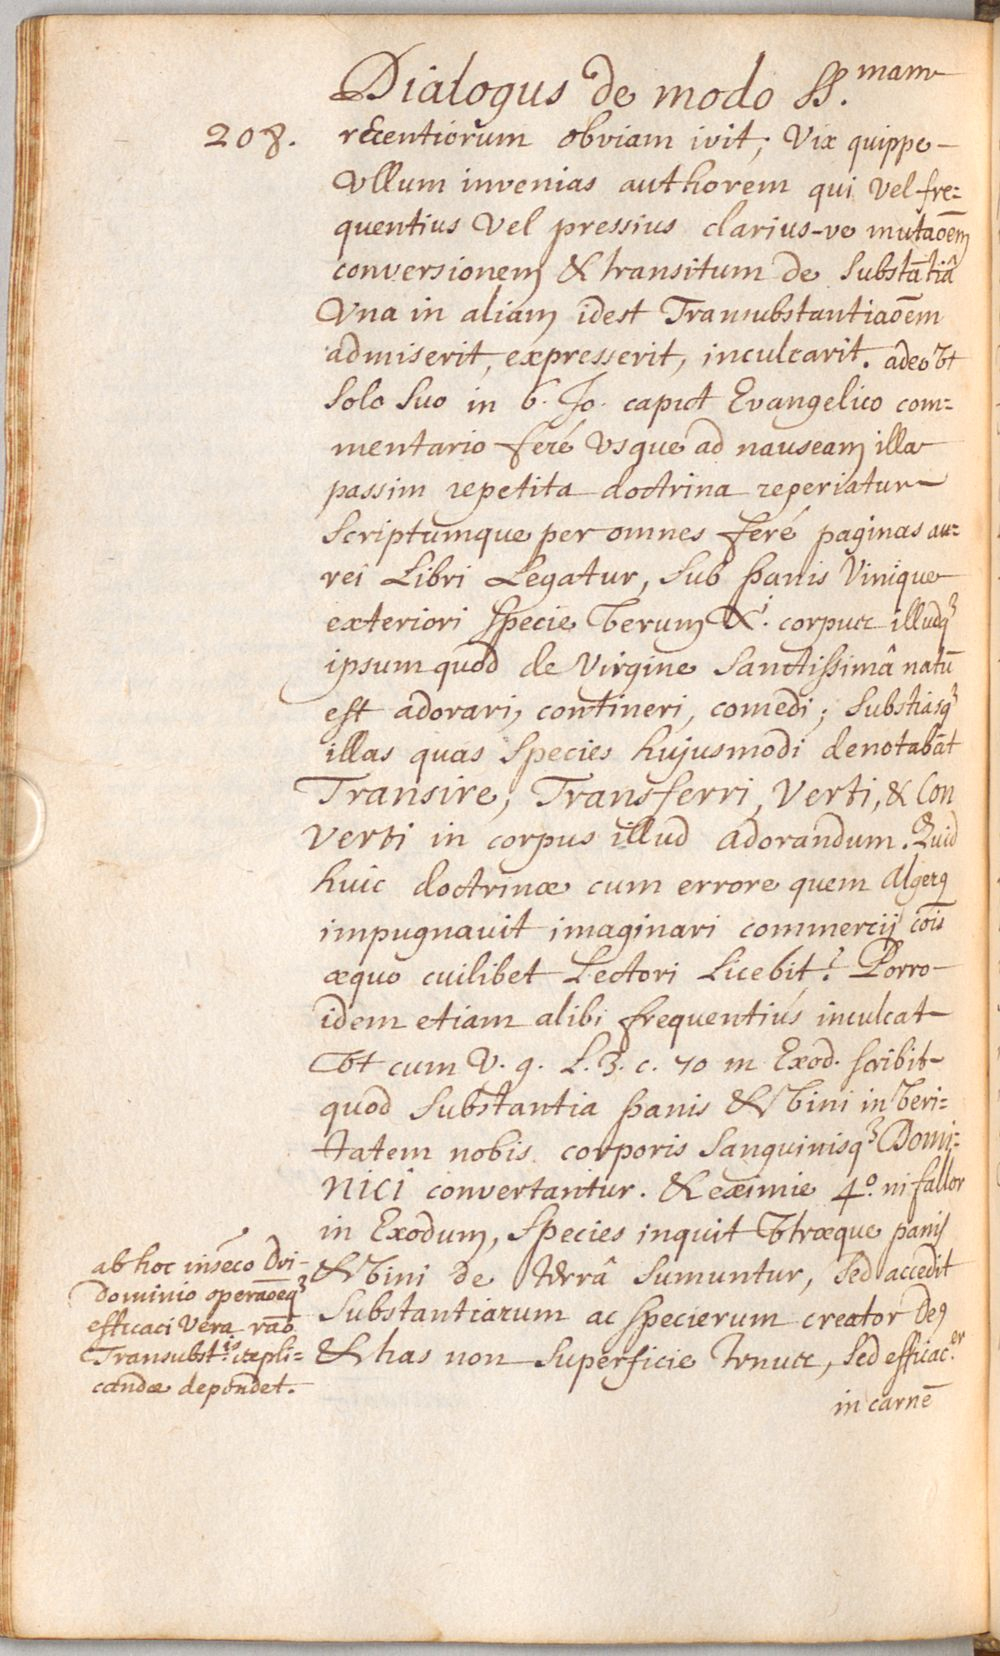 Dialogus de modo SS.mam
208.
recentiorum obviam ivit; Vix quippe
Vllum invenias authorem qui Vel fre=
quentius Vel pressius clarius-ve mutaōem
conversionem & transitum de Substātiâ
Vna in aliam idest Transubstantiaōem
admiserit, expresserit, inculcarit. adeo Vt
Solo Suo in 6. Jo. caput Evangelico com=
mentario feré Vsque ad nauseam illa
passim repetita doctrina reperiatur
Scriptumque per omnes feré paginas au=
rei Libri Legatur, Sub panis Vinique
exteriori Specie Verum X.i corpus illudq3
ipsum quod de Virgine Sanctissimâ natū
est adorari, contineri, comedi; Substiasq3
illas quas Species hujusmodi denotabāt
Transire, Transferri, Verti, & Con
Verti in corpus illud adorandum. Quid
huic doctrinæ cum errore quem Algerq
impugnavit imaginari commercij cōis
æquo cuilibet Lectori Licebit? Porro
idem etiam alibi frequentiús inculcat
Vt cum V. g. L. 3. c. 70 in Exod. scribit
quod Substantia panis & Vini in Veri=
tatem nobis corporis Sanguinisq3 Domi=
nici convertantur. & eximie 4.o ni fallor
in Exodum, Species inquit Vtræque panis
& Vini de terrâ Sumuntur, Sed accedit
Substantiarum ac Specierum creator De9
& has non Superficie tenus, Sed efficac.er
in carnē
ab hoc insēco Dvi
dominio operaōeq3
efficaci Vera raō
Transubst.is expli=
candæ dependet.